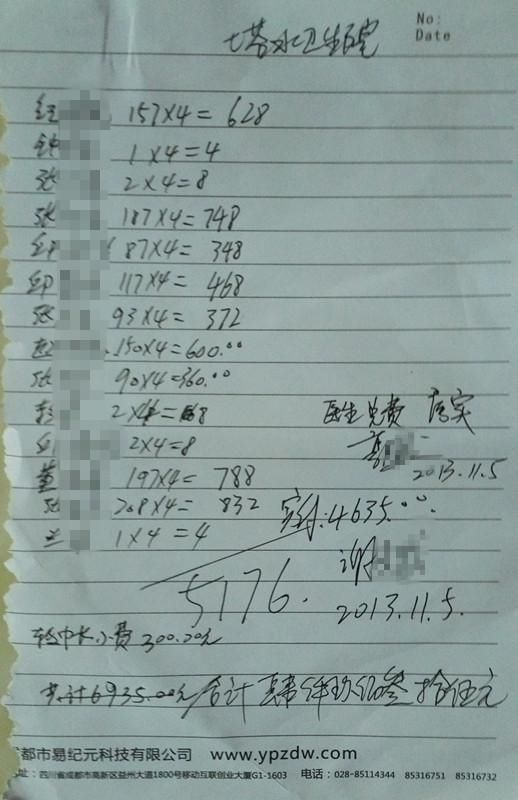 No:
Date
塔水卫生院
157×4= 628
钟 1×4=4
张 2×4=8
张 187×4=748
印 87×4= 348
印 117×4= 468
张 93×4= 372
150×4=600.00
张 90×4=360.00
2×4=8
2×4=8
董 197×4= 788
208×4= 832
兰 1×4=4
医生免费 属实
2013.11.5
实付:4635.00.
谢
5176.
2013.11.5.
小费 300.00元
共计4935.00元/合计 肆仟玖佰叁拾伍元
成都市易纪元科技有限公司 www.ypzdw.com
址：四川省成都市高新区益州大道1800号移动互联创业大厦G1-1603 电话：028-85114344 85316751 85316732